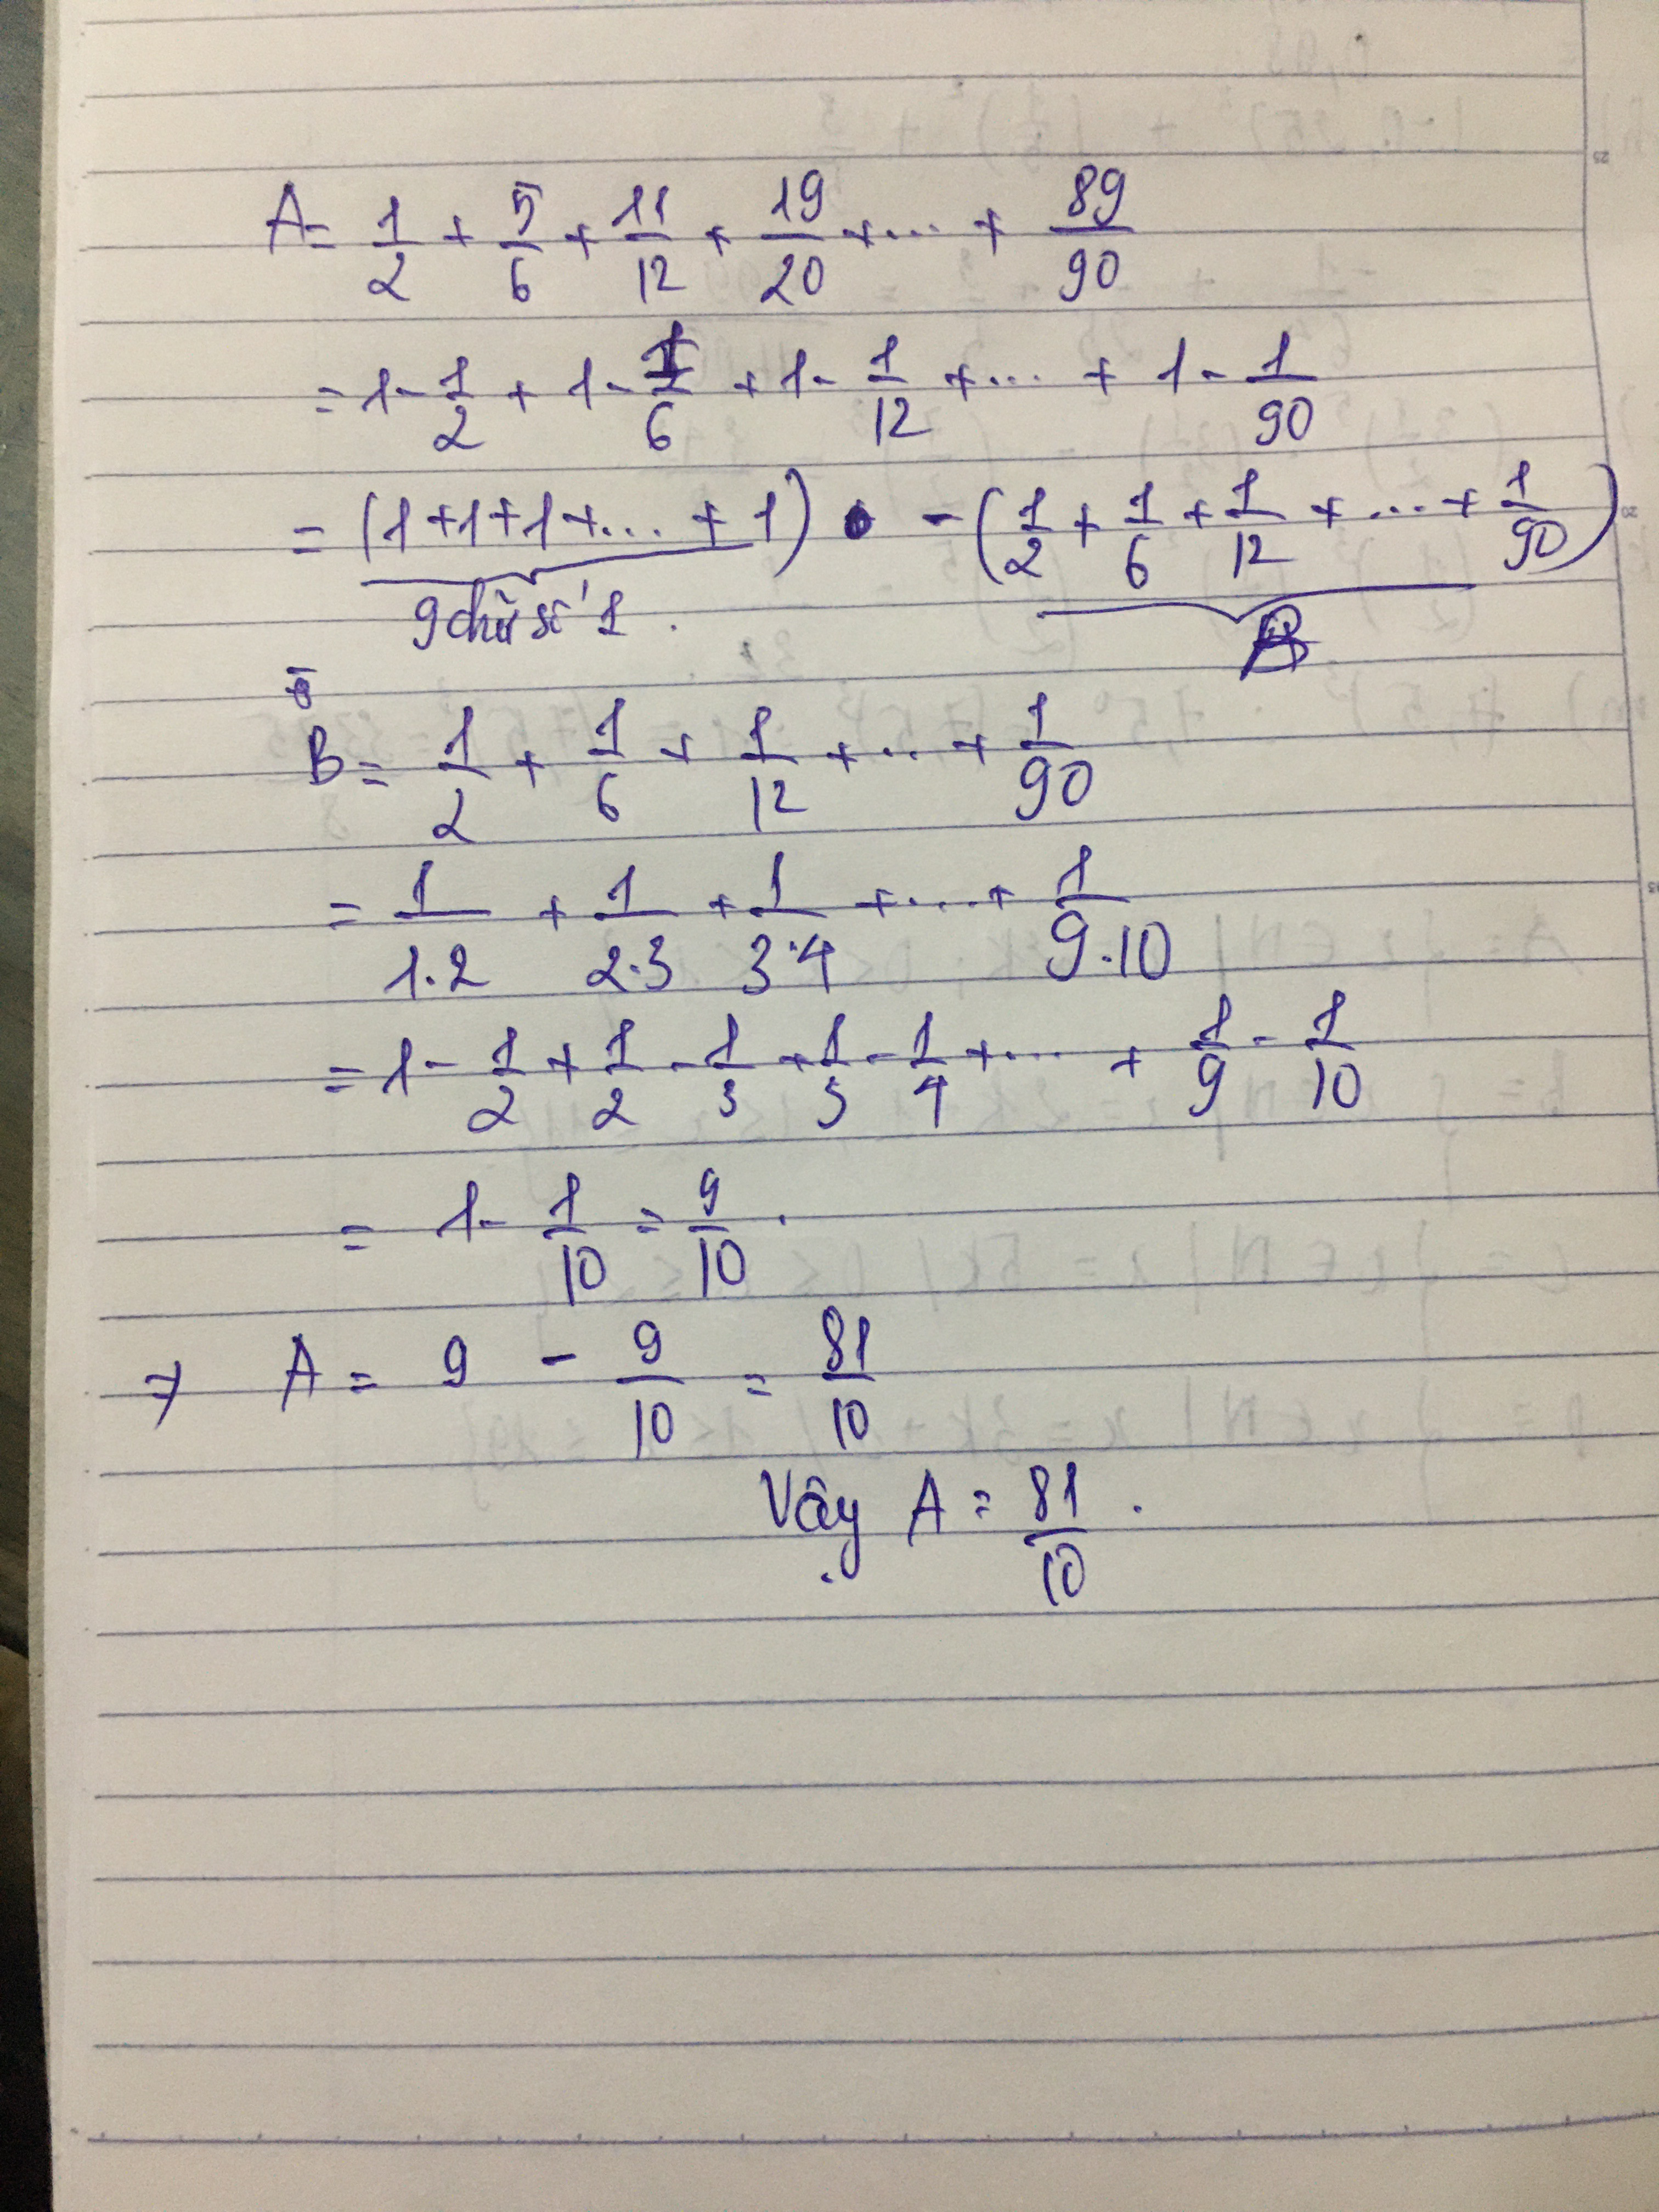 A = 1/2 + 5/6 + 11/12 + 19/20 + ... + 89/90
= 1 - 1/2 + 1 - 1/6 + 1 - 1/12 + ... + 1 - 1/90
= (1 + 1 + 1 + ... + 1) - (1/2 + 1/6 + 1/12 + ... + 1/90)
9 chữ số 1. B
B = 1/2 + 1/6 + 1/12 + ... + 1/90
= 1/1.2 + 1/2.3 + 1/3.4 + ... + 1/9.10
= 1 - 1/2 + 1/2 - 1/3 + 1/3 - 1/4 + ... + 1/9 - 1/10
= 1 - 1/10 = 9/10.
⇒ A = 9 - 9/10 = 81/10
Vậy A = 81/10.